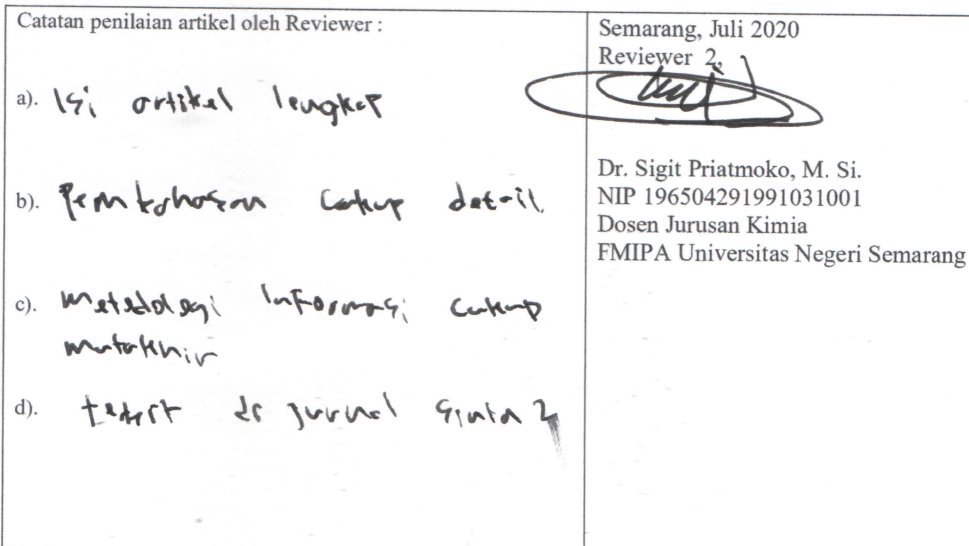 Catatan penilaian artikel oleh Reviewer :
a). Isi artikel lengkap
b). Pembahasan cukup detail
c). Metodologi Informasi cukup
mutakhir
d). terbit di jurnal Sinta 2
Semarang, Juli 2020
Reviewer 2,
Dr. Sigit Priatmoko, M. Si.
NIP 196504291991031001
Dosen Jurusan Kimia
FMIPA Universitas Negeri Semarang